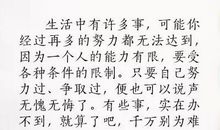 生活中有许多事，可能你
经过再多的努力都无法达到，
因为一个人的能力有限，要受
各种条件的限制。只要自己努
力过、争取过，便也可以说声
无愧无悔了。有些事，实在办
不到，就算了吧，千万别为难